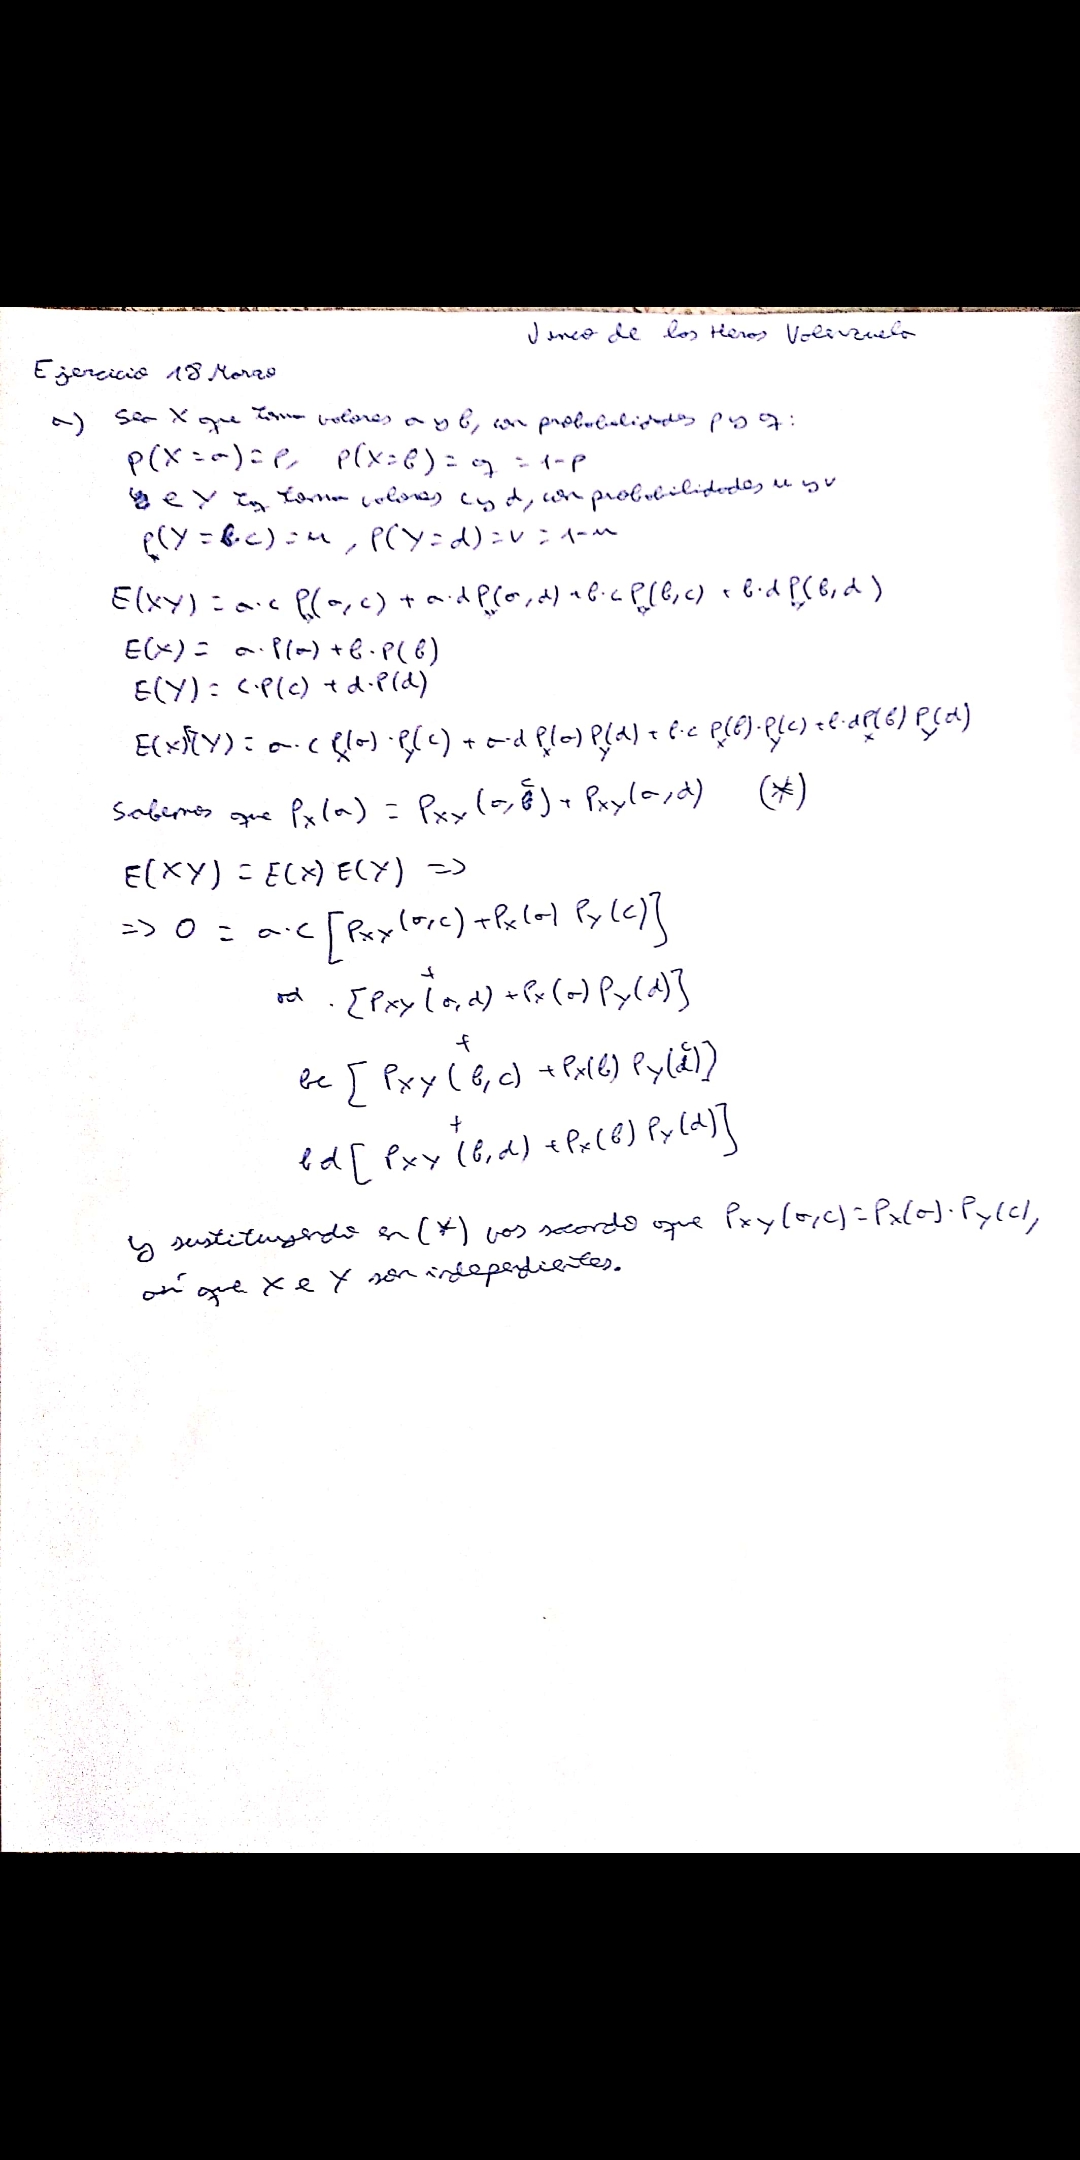 de los Heros
Ejercicio 18 Marzo
a) Sea X que toma valores a y b, con probabilidades p y q:
P(X=a)=p, P(X=b)=q=1-p
e Y tq toma valores c y d, con probabilidades u y v
P(Y=c)=u, P(Y=d)=v=1-u
E(XY)=a·c P(a,c)+a·d P(a,d)+b·c P(b,c)+b·d P(b,d)
E(X)= a·P(a)+b·P(b)
E(Y)= c·P(c)+d·P(d)
E(X)E(Y)= a·c Px(a)·Py(c)+a·d Px(a) Py(d)+b·c Px(b)·Py(c)+b·d Px(b) Py(d)
Sabemos que Px(a) = Pxy(a,c)+Pxy(a,d) (*)
E(XY)=E(X)E(Y) =>
=> 0 = a·c [Pxy(a,c)+Px(a) Py(c)]
+
ad · [Pxy(a,d)+Px(a) Py(d)]
+
bc [Pxy(b,c)+Px(b) Py(c)]
+
bd [Pxy(b,d)+Px(b) Py(d)]
y sustituyendo en (*) vas sacando que Pxy(a,c)=Px(a)·Py(c),
así que X e Y son independientes.